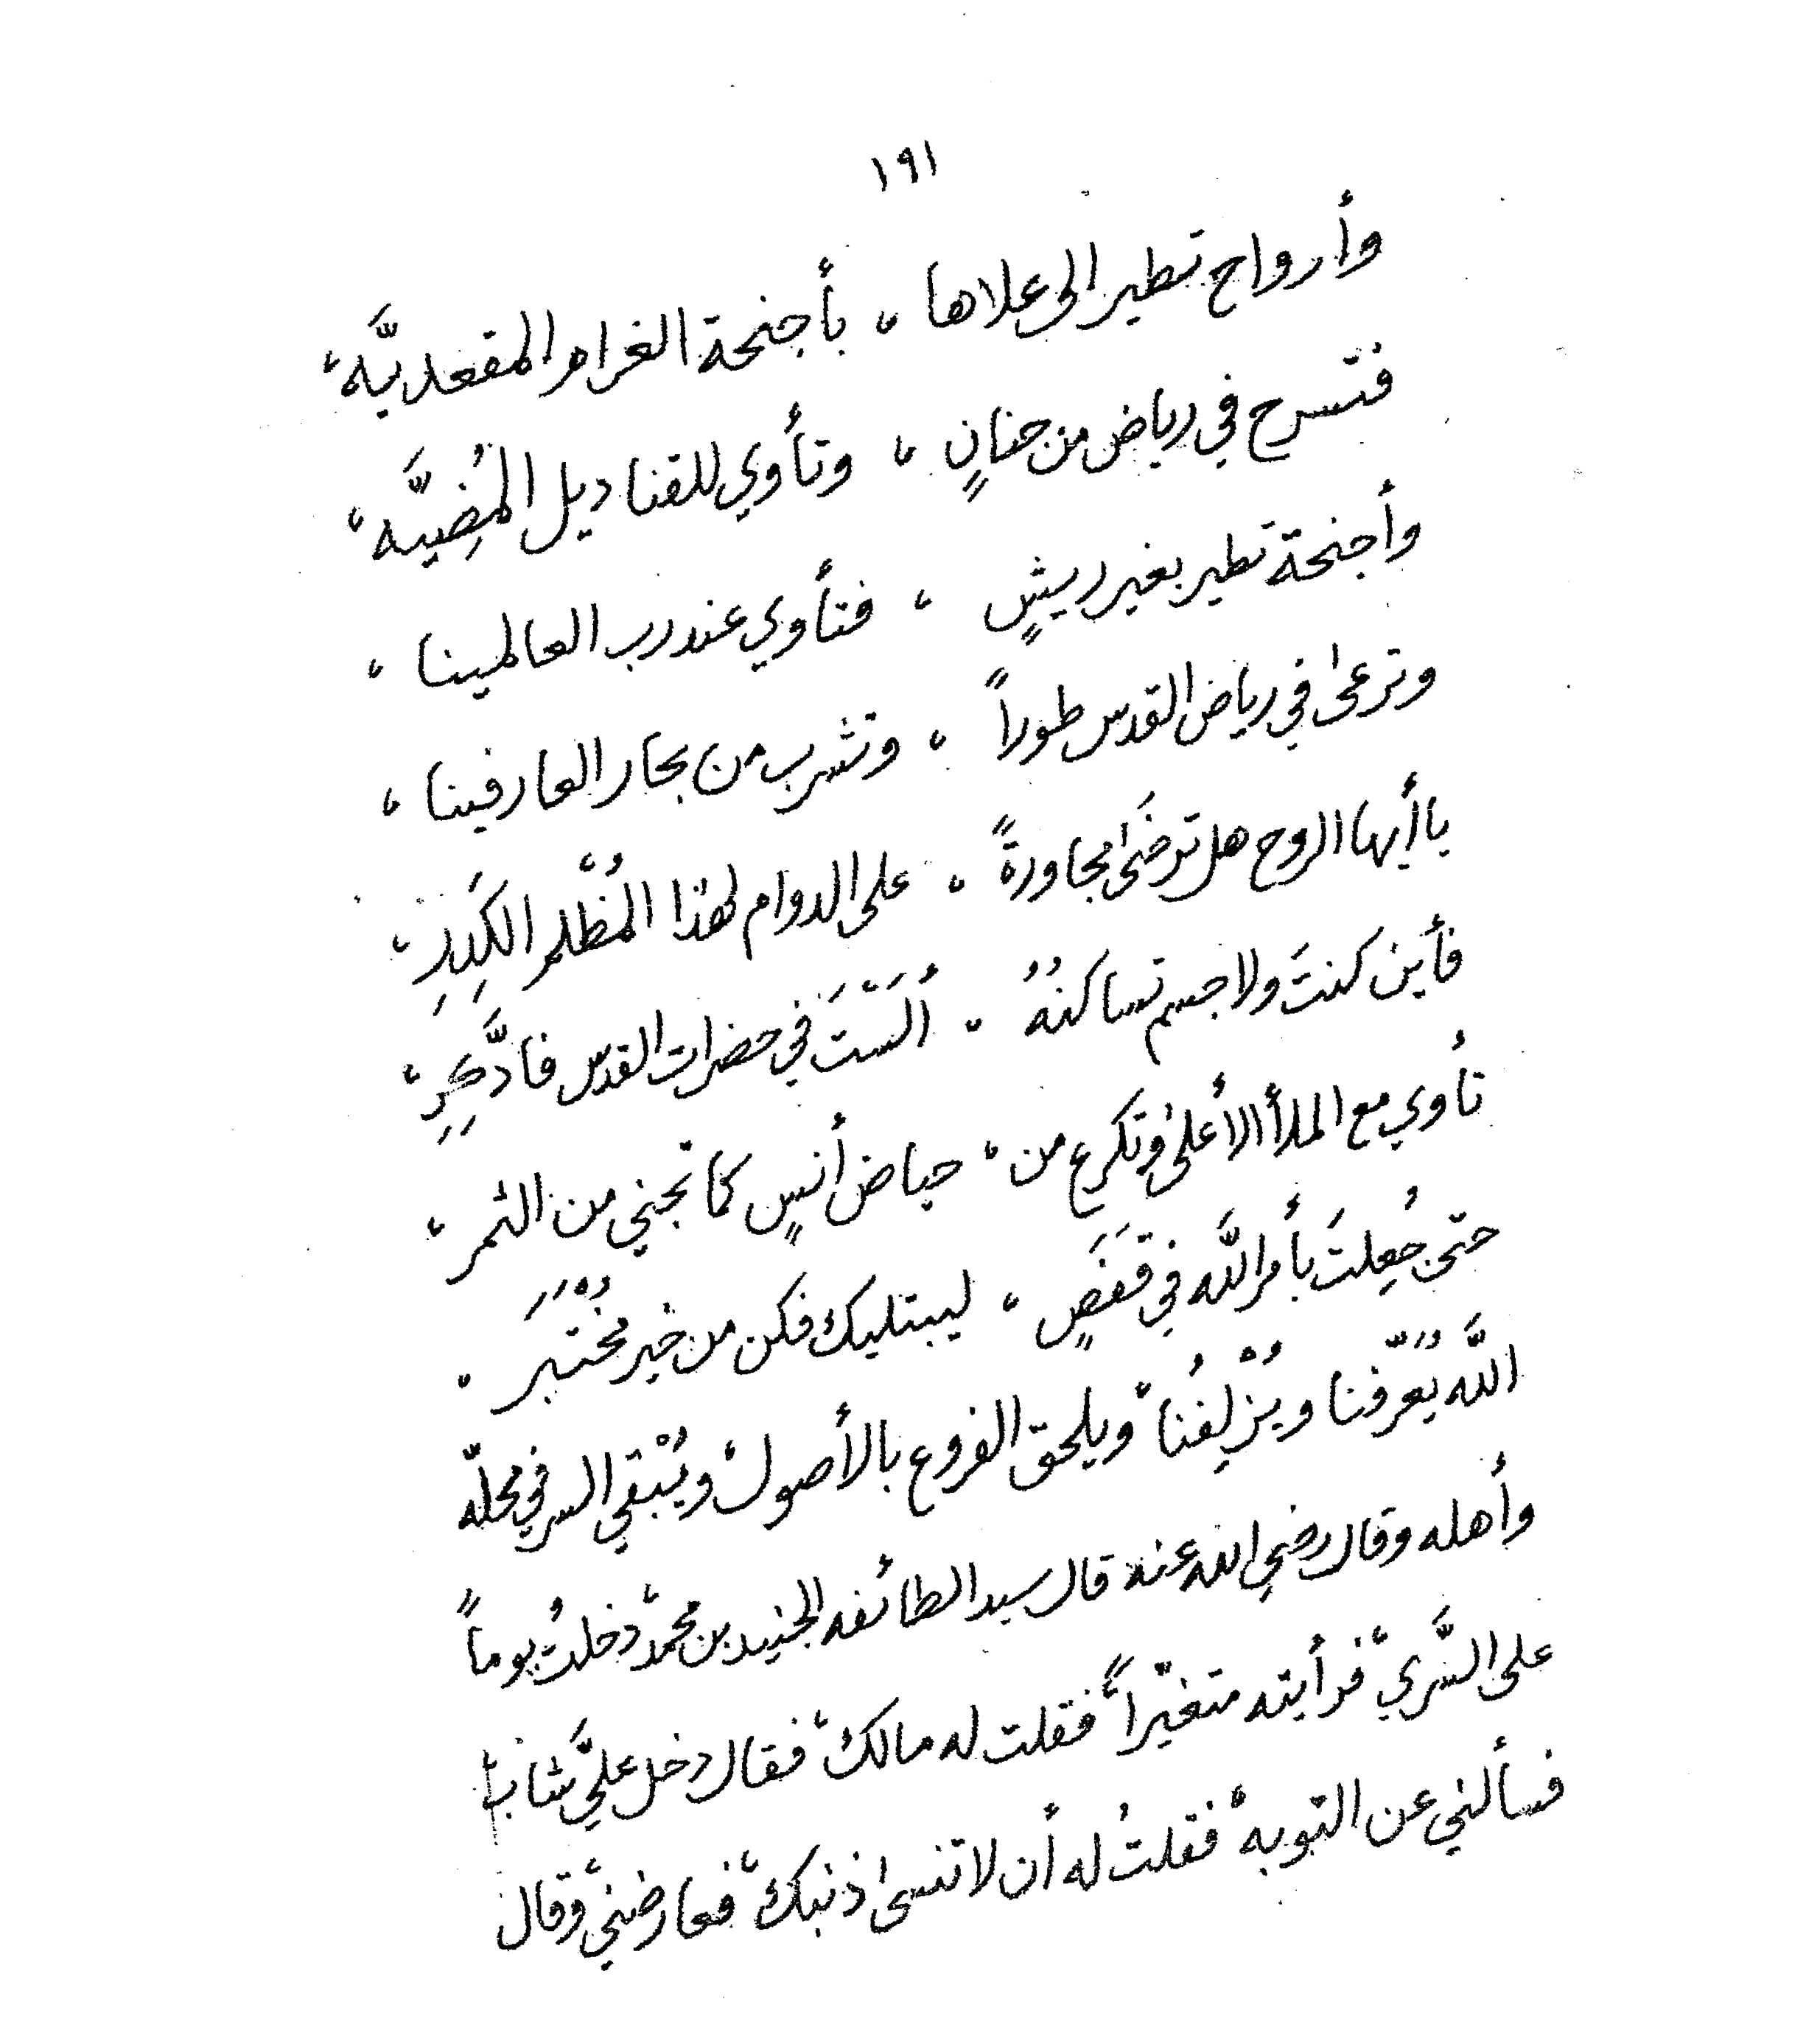 ١٩١
وأرواح تطير الى علاها ، بأجنحة الغرام المقعديَّه ،
فتسرح في رياض من حنانٍ ، وتأوي للقناديل المُضِيَّه ،
وأجنحة تطير بغير ريشٍ ، فتأوي عند رب العالمينا ،
وترعى في رياض القدس طوراً ، وتشرب من بحار العارفينا ،
يا أيها الروح هل ترضَى مجاورةً ، على الدوام لهذا المُظْلم الكَدِرِ ،
فأين كنتَ ولا جسم تساكنُهُ ، أَلَسْتَ في حضرات القدس فادَّكِرِ ،
تأوي مع الملأ الأعلى وتكرع من ، حياض أنسٍ كما تجني من الثمر ،
حتى جُعِلتَ بأمر اللَّه في قَفَصٍ ، ليبتليك فكن من خير مُخْتَبَرِ ،
اللَّه يُعَرّفنا ويُزْلِفُنا ، ويلحق الفروع بالأصول ، ويُبْقي السر في محلّه
وأهله وقال رضي الله عنه قال سيد الطائفه الجنيد بن محمد ، دخلتُ يوماً
على السَّري ، فرأيته متغيّراً ، فقلت له مالك ، فقال دخل عليَّ شاب ،
فسألني عن التوبه ، فقلتُ له أن لا تنسى ذنبك ، فعارضني ، وقال